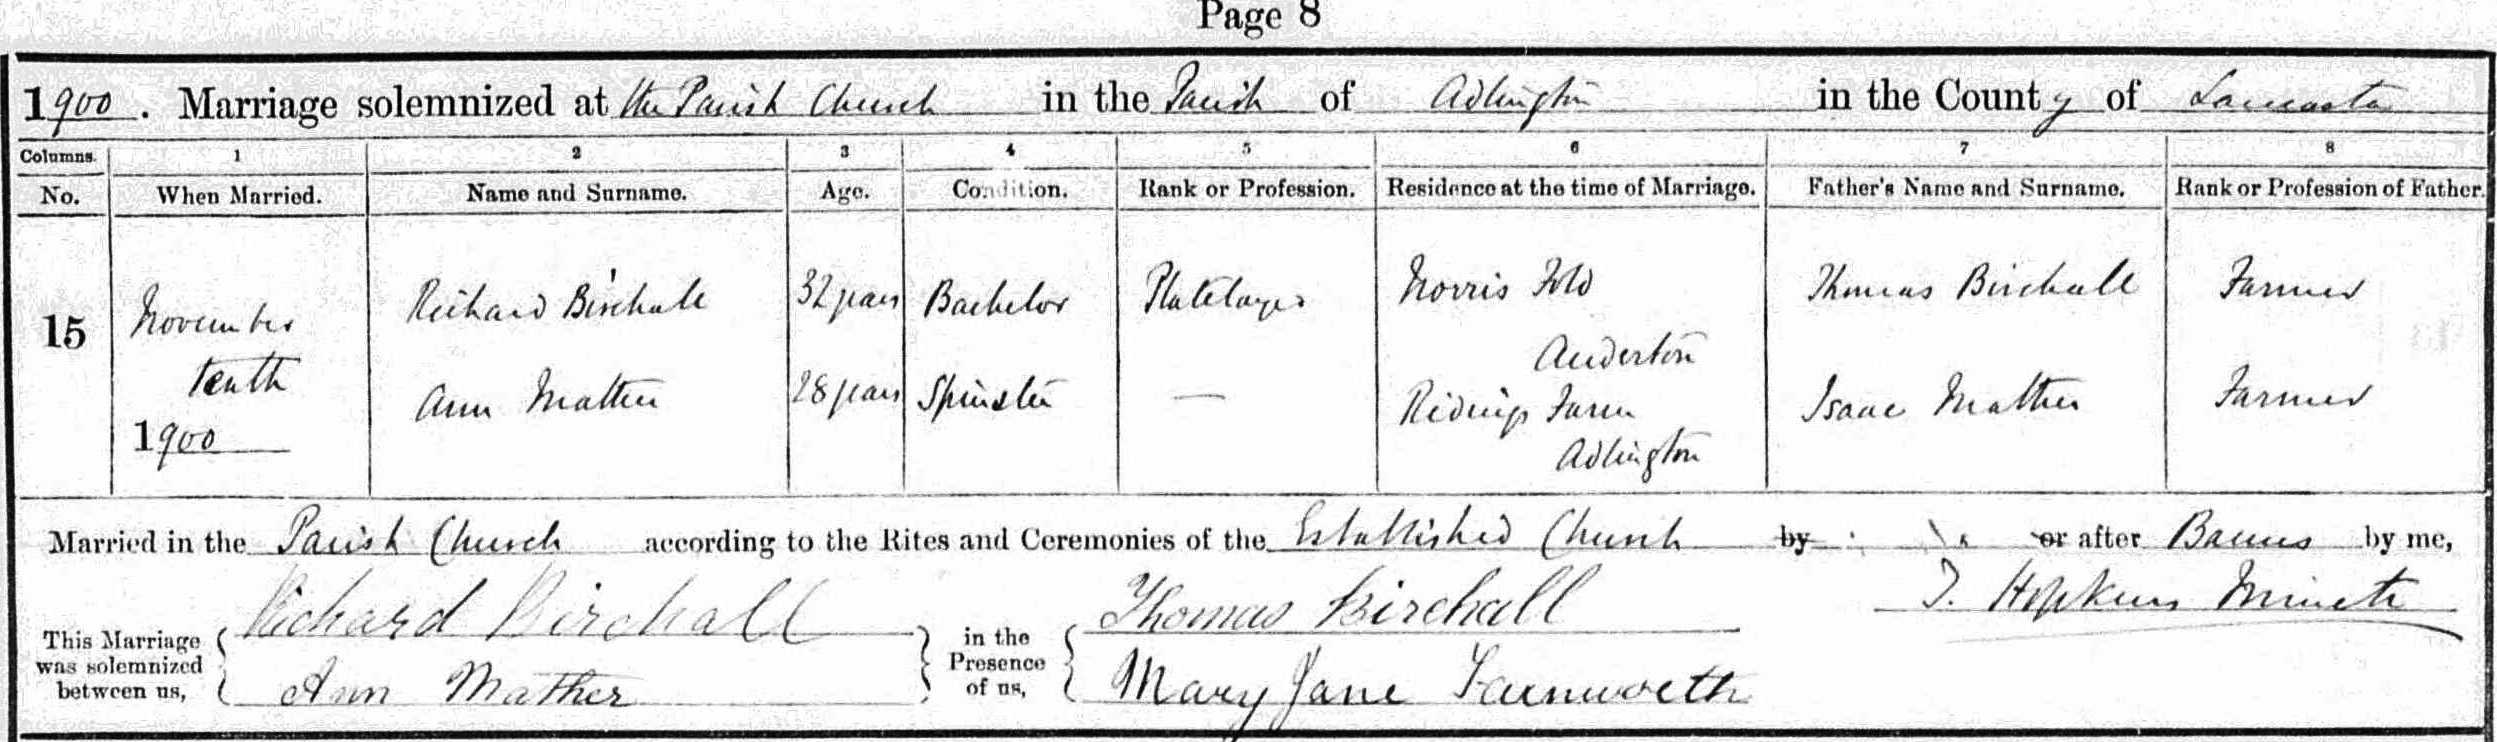 Page 8
1900. Marriage solemnized at the Parish Church in the Parish of Adlington in the County of Lancaster
Columns. 1 2 3 4 5 6 7 8
No. When Married. Name and Surname. Age. Condition. Rank or Profession. Residence at the time of Marriage. Father's Name and Surname. Rank or Profession of Father.
15 November Richard Birchall 32 years Bachelor Platelayer Norris Fold Thomas Birchall Farmer
Anderton
tenth Ann Mather 28 years Spinster — Ridings Farm Isaac Mather Farmer
1900 Adlington
Married in the Parish Church according to the Rites and Ceremonies of the Established Church by or after Banns by me,
Richard Birchall Thomas Birchall Hopkins Minister
This Marriage was solemnized between us, in the Presence of us,
Ann Mather Mary Jane Farnworth